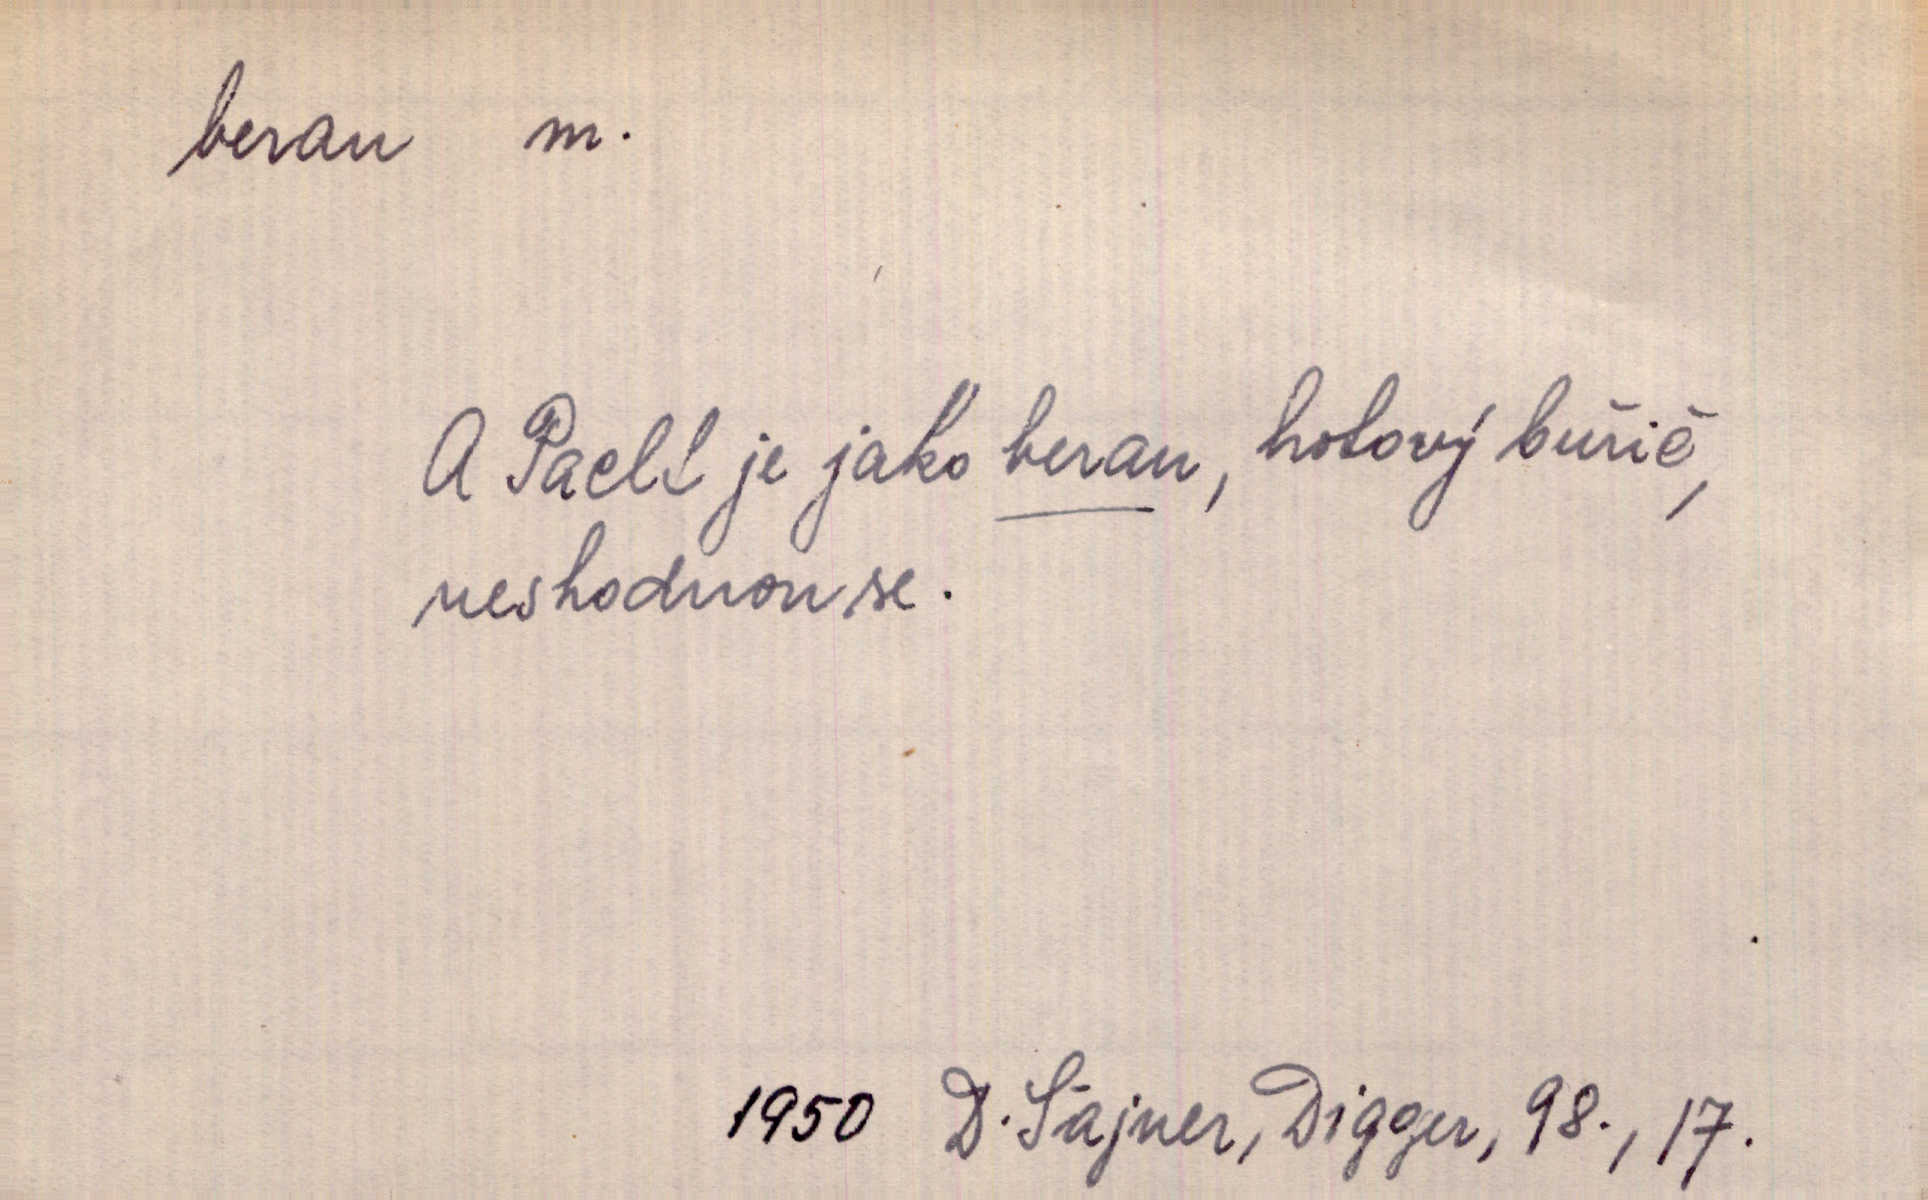 beran m.
A Paclt je jako beran, hotový buřič,
neshodnou se.
1950 D. Šajner, Digger, 98., 17.